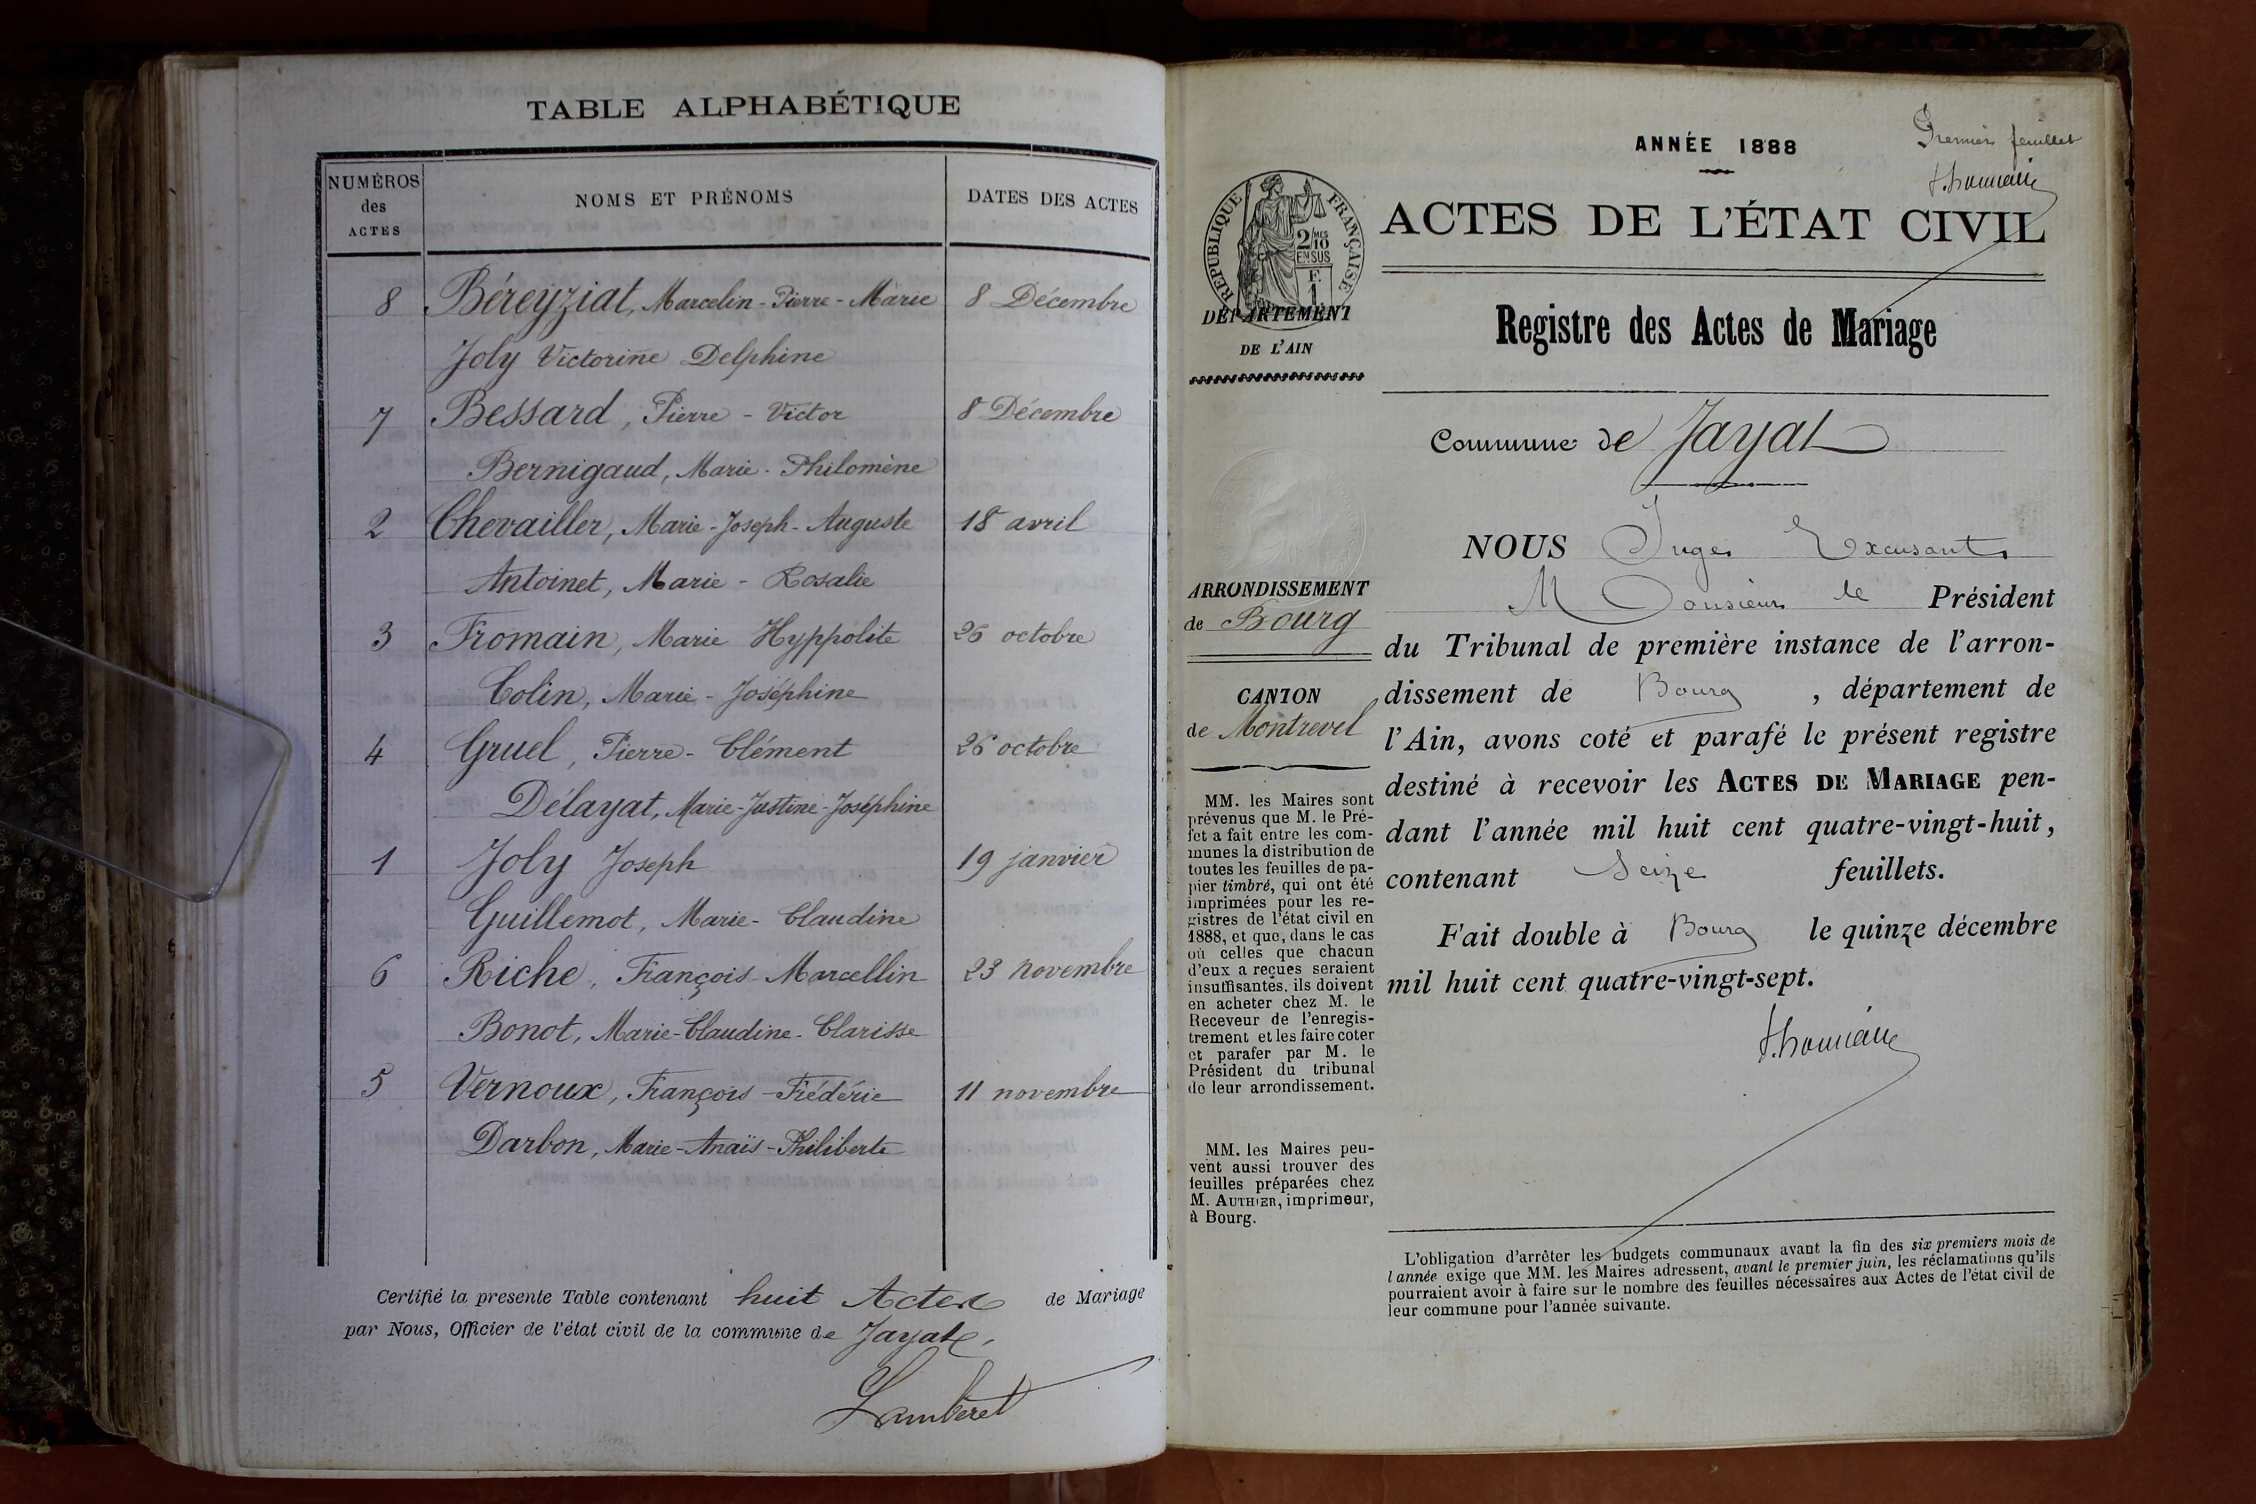 TABLE ALPHABÉTIQUE
NUMÉROS des ACTES
NOMS ET PRÉNOMS
DATES DES ACTES
8 Béreyziat, Marcelin-Pierre-Marie 8 Décembre
Joly Victorine Delphine
7 Bessard, Pierre-Victor 8 Décembre
Bernigaud, Marie-Philomène
2 Chevailler, Marie-Joseph-Auguste 18 avril
Antoinet, Marie-Rosalie
3 Fromain, Marie Hyppolite 26 octobre
Colin, Marie-Joséphine
4 Gruel, Pierre-Clément 26 octobre
Délayat, Marie-Justine-Joséphine
1 Joly Joseph 19 janvier
Guillemot, Marie-Claudine
6 Riche, François-Marcellin 23 novembre
Bonot, Marie-Claudine-Clarisse
5 Vernoux, François-Frédéric 11 novembre
Darbon, Marie-Anaïs-Philiberte
Certifié la presente Table contenant huit Actes de Mariage
par Nous, Officier de l'état civil de la commune de Jayat,
Lamberet
Premier feuillet
ANNÉE 1888
ACTES DE L'ÉTAT CIVIL
RÉPUBLIQUE FRANÇAISE
2 MES
10
EN SUS
F.
1
DÉPARTEMENT
DE L'AIN
Registre des Actes de Mariage
Commune de Jayat
ARRONDISSEMENT
de Bourg
CANTON
de Montrevel
MM. les Maires sont
prévenus que M. le Pré-
fet a fait entre les com-
munes la distribution de
toutes les feuilles de pa-
pier timbré, qui ont été
imprimées pour les re-
gistres de l'état civil en
1888, et que, dans le cas
où celles que chacun
d'eux a reçues seraient
insuffisantes, ils doivent
en acheter chez M. le
Receveur de l'enregis-
trement et les faire coter
et parafer par M. le
Président du tribunal
de leur arrondissement.
MM. les Maires peu-
vent aussi trouver des
feuilles préparées chez
M. AUTHIER, imprimeur,
à Bourg.
NOUS Juge Excusant
Monsieur le Président
du Tribunal de première instance de l'arron-
dissement de Bourg, département de
l'Ain, avons coté et parafé le présent registre
destiné à recevoir les ACTES DE MARIAGE pen-
dant l'année mil huit cent quatre-vingt-huit,
contenant Seize feuillets.
Fait double à Bourg le quinze décembre
mil huit cent quatre-vingt-sept.
L'obligation d'arrêter les budgets communaux avant la fin des six premiers mois de
l'année exige que MM. les Maires adressent, avant le premier juin, les réclamations qu'ils
pourraient avoir à faire sur le nombre des feuilles nécessaires aux Actes de l'état civil de
leur commune pour l'année suivante.